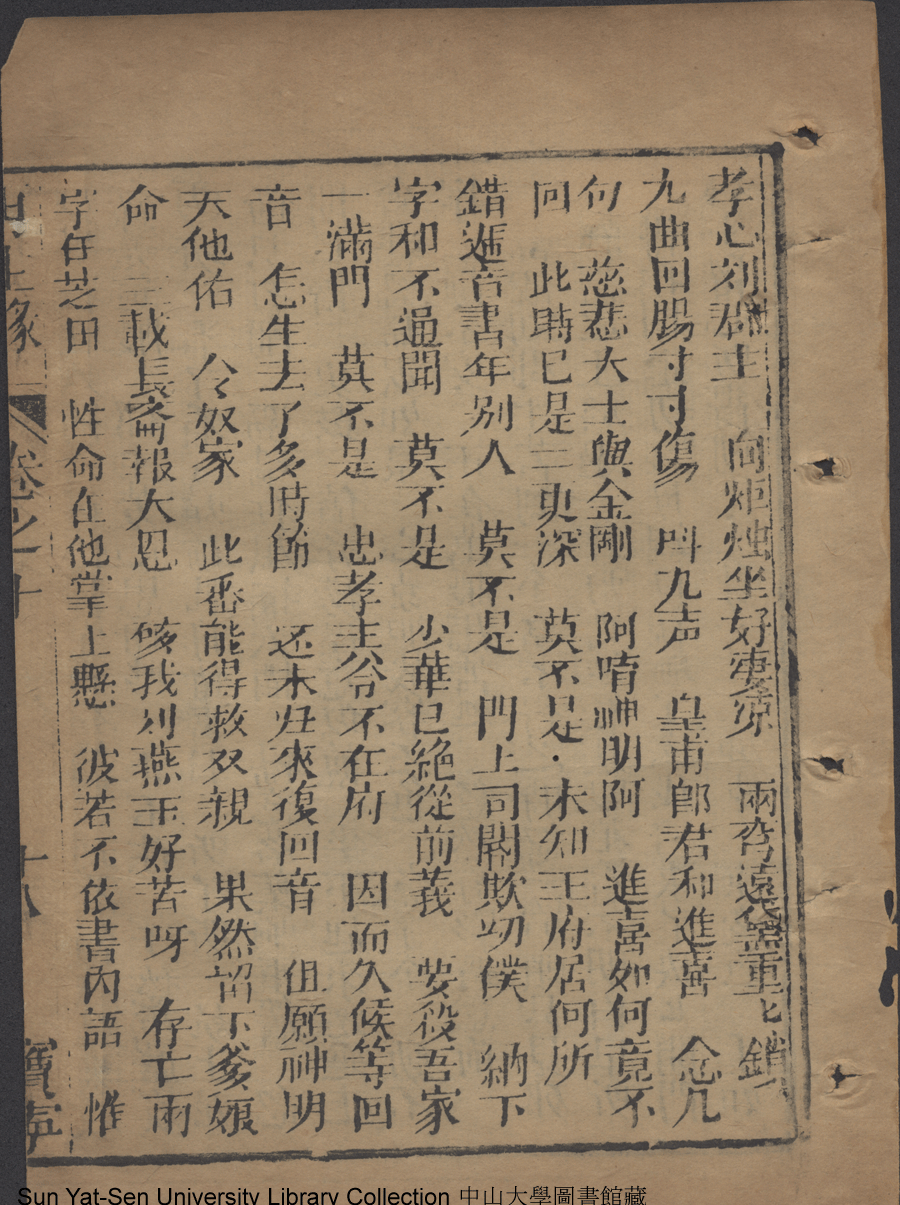 孝心刘郡主　向炬烛坐好凄凉　兩弯遠黛重七鎖
九曲回腸寸寸傷　叫九声　皇甫郎君和進喜　念几
句　慈悲大士與金剛　阿唷神明阿　進喜如何竟不
回　此時已是二更深　莫不是·未知王府居何所
錯逓音書年别人　莫不是　門上司閽欺幼僕　納下
字和不通聞　莫不是　少華已絶從前義　要殺吾家
一滿門　莫不是　忠孝主公不在府　因而久候等回
音　怎生去了多時節　还未归來復回音　但願神明
天他佑　令奴家　此番能得救双親　果然留下爹娘
命　三載長齋報大恩　咳我刘燕玉好苦呀　存亡兩
字在芝田　性命在他掌上懸　彼若不依書内語　惟
再生緣　卷之十　十八　寶寧
Sun Yat-Sen University Library Collection 中山大學圖書館藏